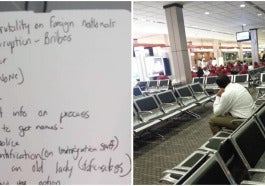 brutality on Foreign nationals
rruption - Bribes
or
NONE)
t info on process
to get names.
olice
ntification (on Immigration staff)
an old lady